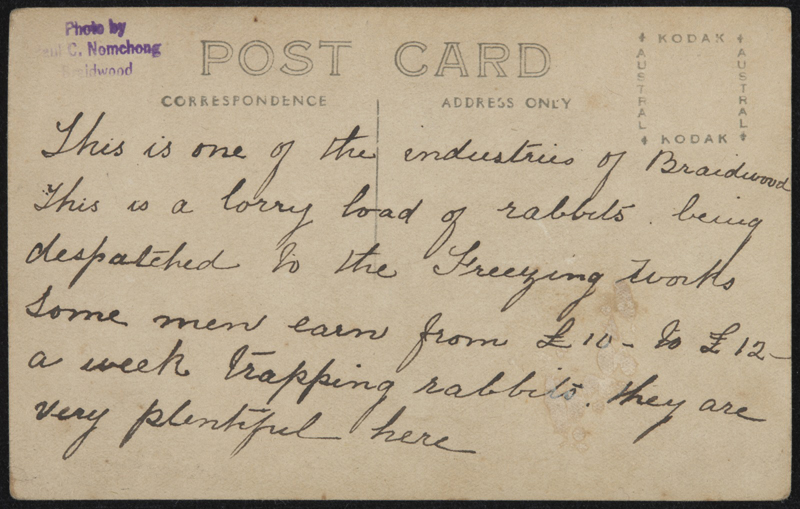 Photo by
C. Nomchong
Braidwood
POST CARD
CORRESPONDENCE
ADDRESS ONLY
KODAK
AUSTRAL
AUSTRAL
KODAK
This is one of the industries of Braidwood
This is a lorry load of rabbits. being
despatched to the Freezing Works
Some men earn from £10 - to £12 -
a week trapping rabbits. They are
very plentiful here